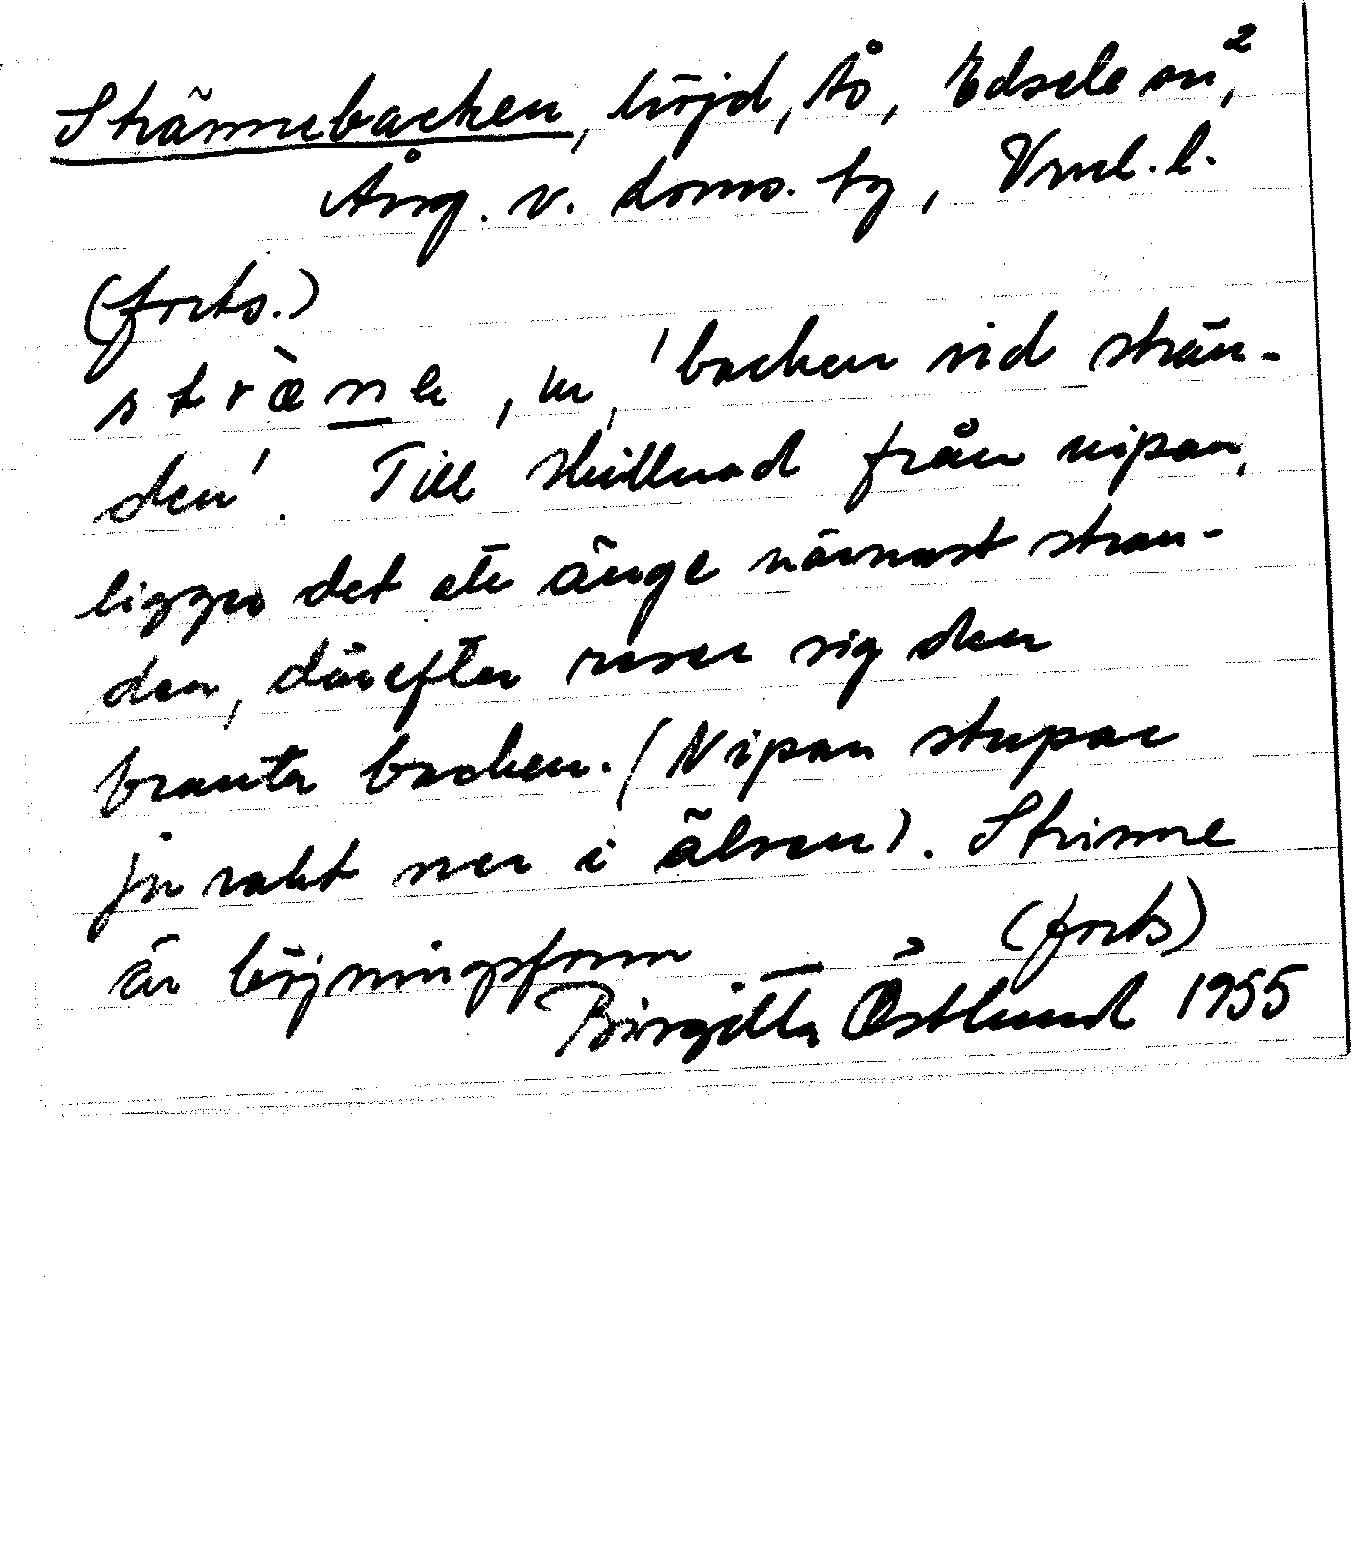 Strännebacken, höjd, Å, Edsele sn,²
Ång. v. doms. tg, Vnl. l.
(forts.)
stræne, m, 'backen vid strän-
den'. Till skillnad från nipan,
ligger det ett änge närmast stran-
den, därefter reser sig den
branta backen. (Nipan stupar
ju rakt ner i älven). Strinne
är böjningsform (forts)
Birgitta Östlund 1955